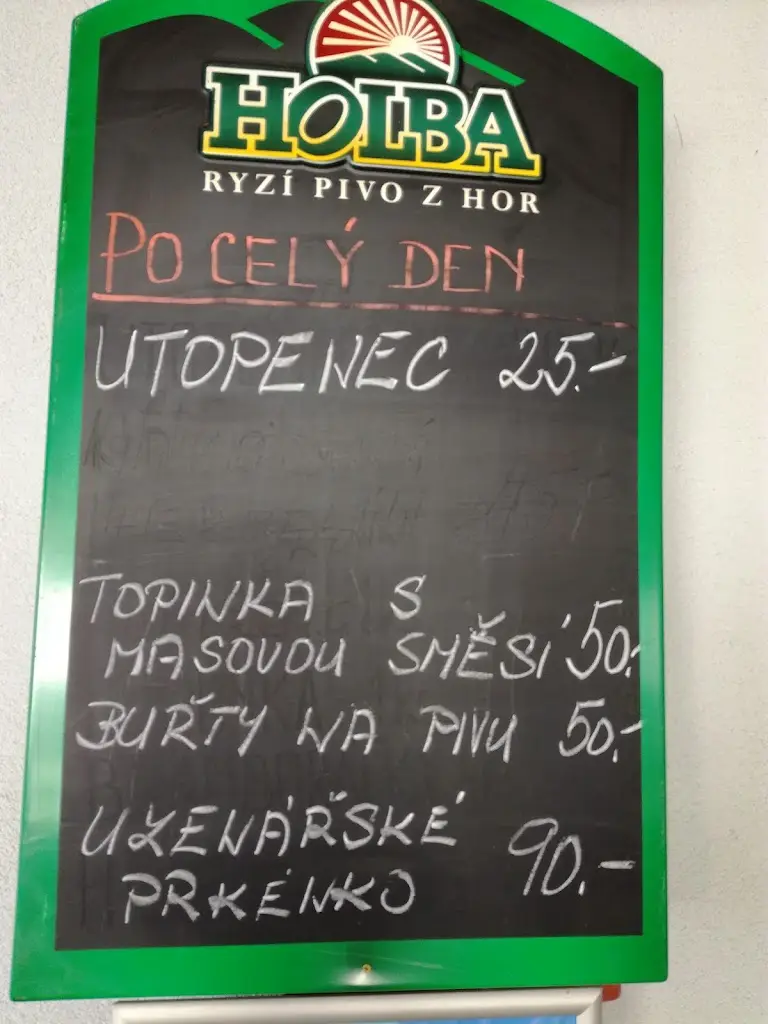 HOLBA
RYZÍ PIVO Z HOR
PO CELÝ DEN
UTOPENEC 25.-
TOPINKA S
MASOVOU SMĚSÍ 50.-
BUŘTY NA PIVU 50.-
UZENÁŘSKÉ
PRKÉNKO 90.-